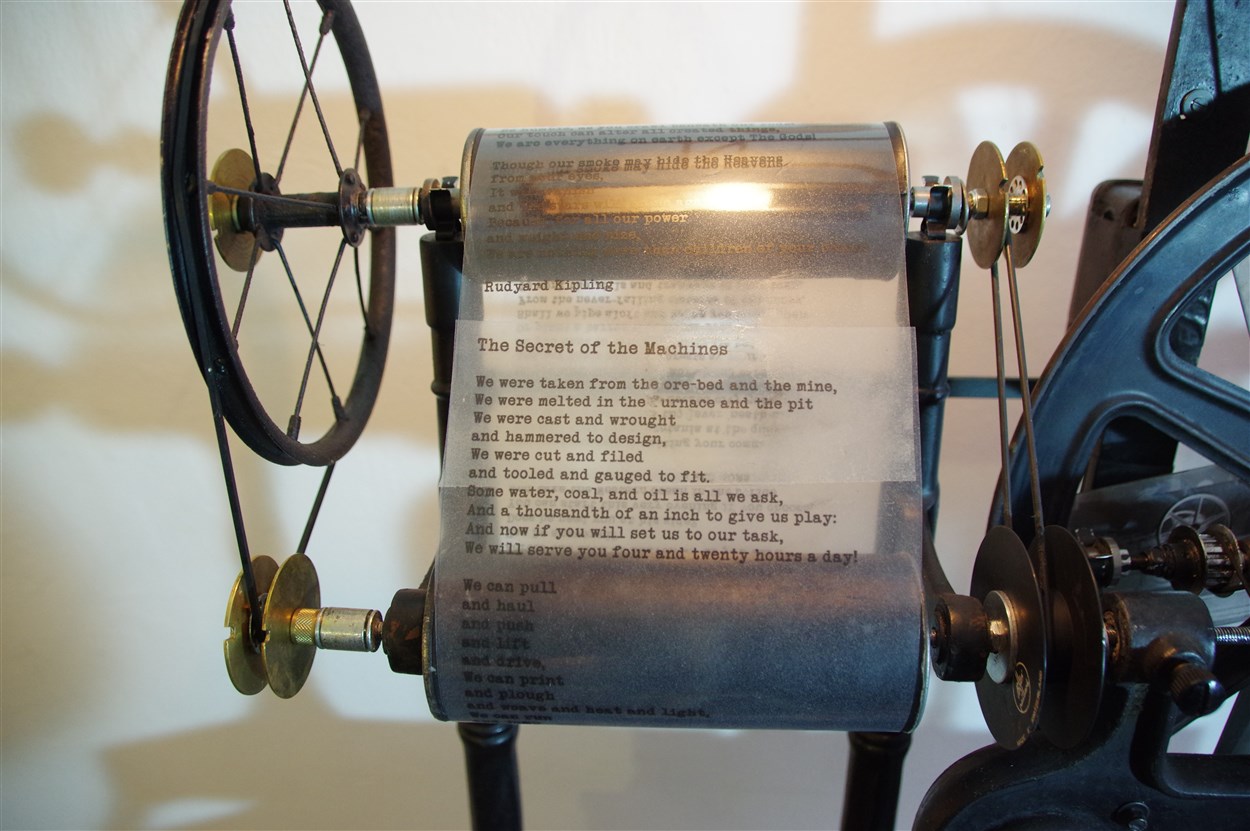 Our touch can alter all created things,
We are everything on earth except The Gods!
Though our smoke may hide the Heavens
from eyes,
It
and
Because all our power
and
Rudyard Kipling
The Secret of the Machines
We were taken from the ore-bed and the mine,
We were melted in the urnace and the pit
We were cast and wrought
and hammered to design,
We were cut and filed
and tooled and gauged to fit.
Some water, coal, and oil is all we ask,
And a thousandth of an inch to give us play:
And now if you will set us to our task,
We will serve you four and twenty hours a day!
We can pull
and haul
and push
and lift
and drive,
We can print
and plough
and weave and heat and light,
We can run